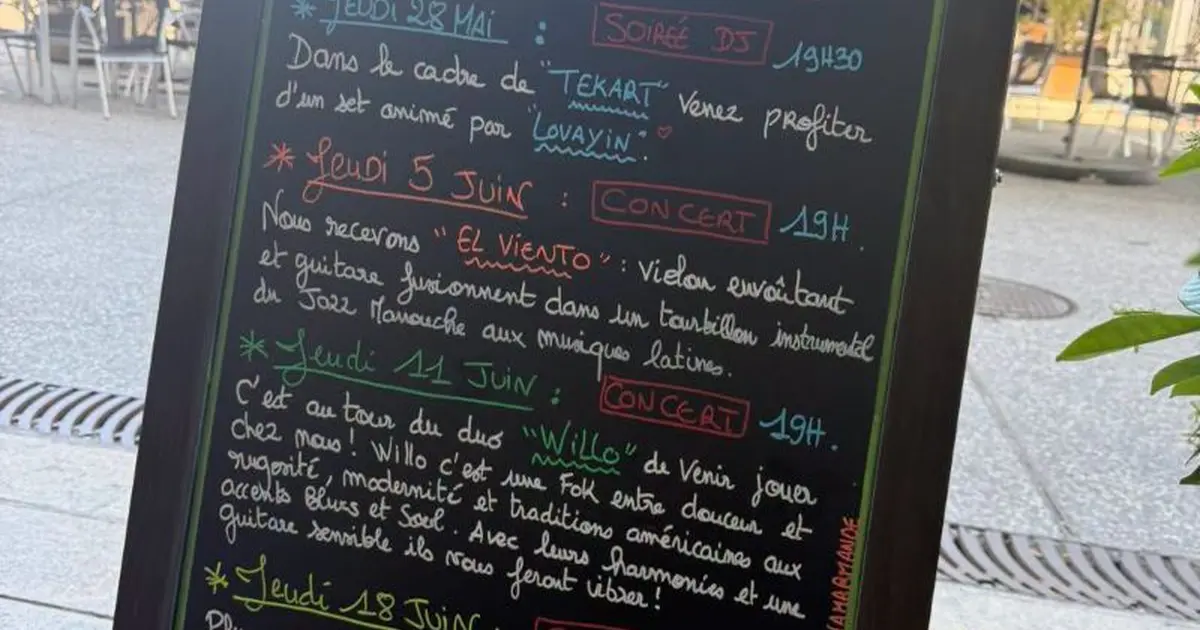 * JEUDI 28 MAI : SOIRÉE DJ 19H30
Dans le cadre de "TEKART" venez profiter
d'un set animé par "LOVAYIN". ♡
* Jeudi 5 JUIN : CONCERT 19H.
Nous recevons "EL ViENTO" : violon envoûtant
et guitare fusionnent dans un tourbillon instrumental
du Jazz Manouche aux musiques latines.
* Jeudi 11 JUIN : CONCERT 19H.
C'est au tour du duo "WiLLO" de venir jouer
chez nous! Willo c'est une Fok entre douceur et
rugosité, modernité et traditions américaines aux
accents Blues et Soul. Avec leurs harmonies et une
guitare sensible ils vous feront vibrer!
* Jeudi 18 JUIN :